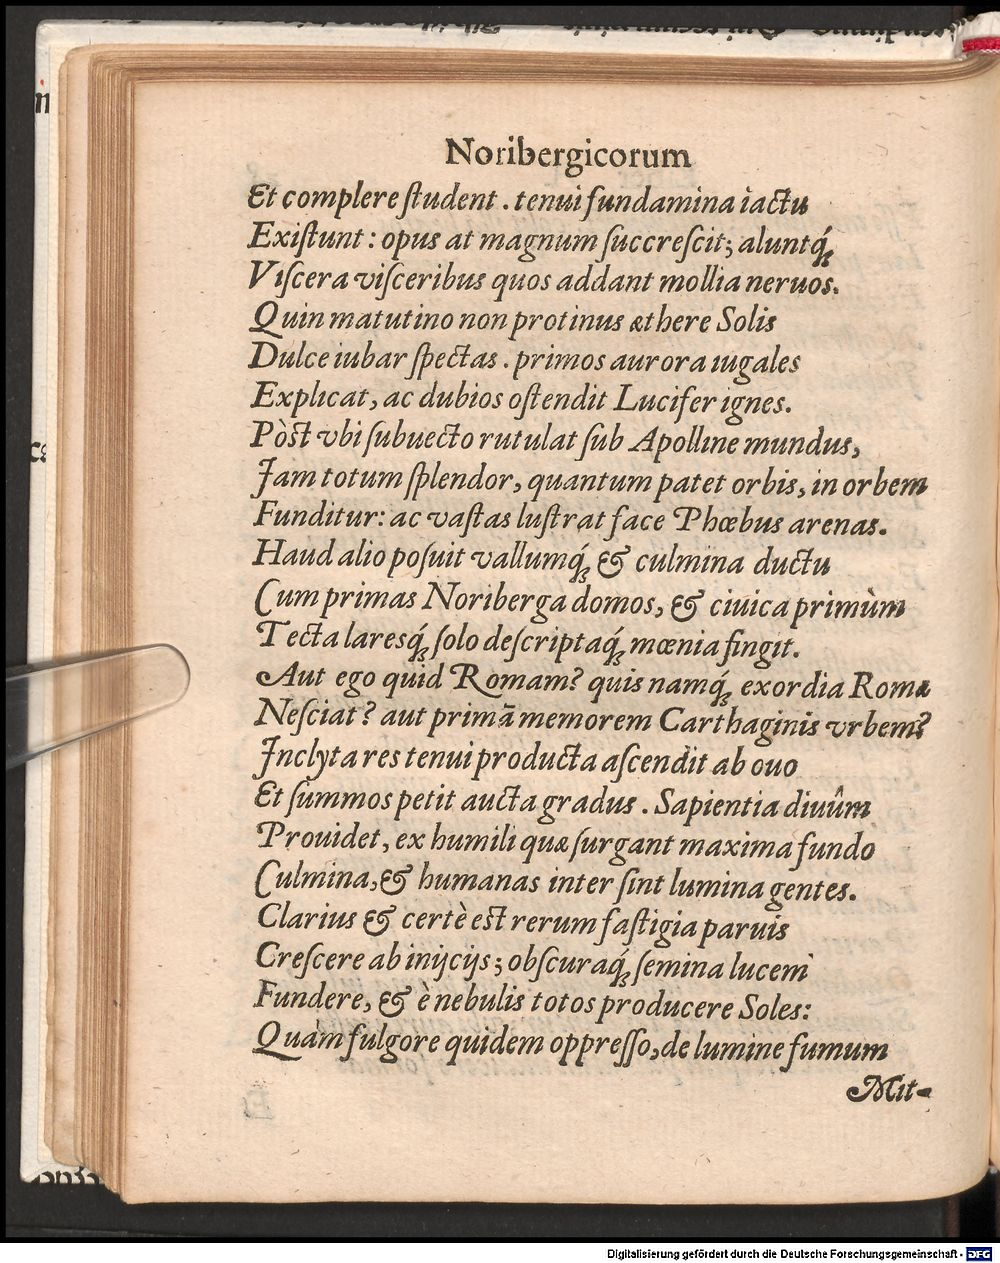 Noribergicorum
Et complere ſtudent. tenui fundamina iactu
Exiſtunt: opus at magnum ſuccreſcit; aluntq́;
Viſcera viſceribus quos addant mollia neruos.
Quin matutino non protinus æthere Solis
Dulce iubar ſpectas. primos aurora iugales
Explicat, ac dubios oſtendit Lucifer ignes.
Pòst vbi ſubuecto rutulat ſub Apolline mundus,
Jam totum ſplendor, quantum patet orbis, in orbem
Funditur: ac vaſtas luſtrat face Phœbus arenas.
Haud alio poſuit vallumq́; & culmina ductu
Cum primas Noriberga domos, & ciuica primùm
Tecta laresq́; ſolo deſcriptaq́; mœnia fingit.
Aut ego quid Romam? quis namq́; exordia Romæ
Neſciat? aut primā memorem Carthaginis vrbem?
Jnclyta res tenui producta aſcendit ab ouo
Et ſummos petit aucta gradus. Sapientia diuûm
Prouidet, ex humili quæ ſurgant maxima fundo
Culmina, & humanas inter ſint lumina gentes.
Clarius & certè est rerum faſtigia paruis
Creſcere ab inijcijs; obſcuraq́; ſemina lucem
Fundere, & è nebulis totos producere Soles:
Quàm fulgore quidem oppreſſo, de lumine fumum
Mit-
Digitalisierung gefördert durch die Deutsche Forschungsgemeinschaft - DFG